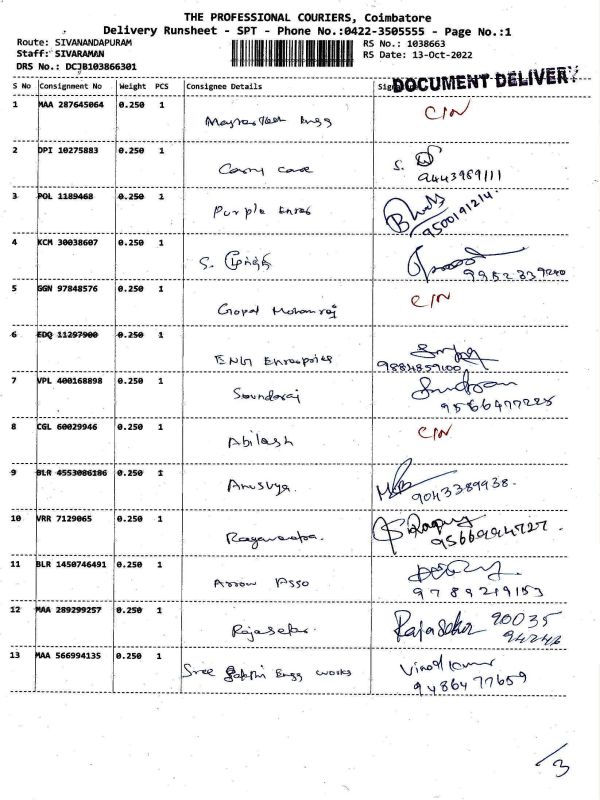 THE PROFESSIONAL COURIERS, Coimbatore
Delivery Runsheet - SPT - Phone No.:0422-3505555 - Page No.:1
Route: SIVANANDAPURAM
RS No.: 1038663
Staff: SIVARAMAN
RS Date: 13-Oct-2022
DRS No.: DCJB103866301
DOCUMENT DELIVERY
S No Consignment No Weight PCS Consignee Details Sig
1 MAA 287645064 0.250 1 C/N
2 DPI 10275883 0.250 1 S.
Carry care 9443969111
3 POL 1189468 0.250 1
Purple 9500191214
4 KCM 30038607 0.250 1
S. 9952339240
5 GGN 97848576 0.250 1 C/N
Gopal Mohanraj
6 EDQ 11297900 0.250 1
9884859100
7 VPL 400168898 0.250 1
Soundaraj
8 CGL 60029946 0.250 1 C/N
Abilash
9 BLR 4553086186 0.250 1
Anusvya. 9043389938.
10 VRR 7129065 0.250 1
11 BLR 1450746491 0.250 1
Arrow Asso 9789219153
12 MAA 289299257 0.250 1
Rajasekar. Rajasekar 90035
94246
13 MAA 566994135 0.250 1 Vinoth kumar
Sree Sakthi Engg works 9486477659
/3